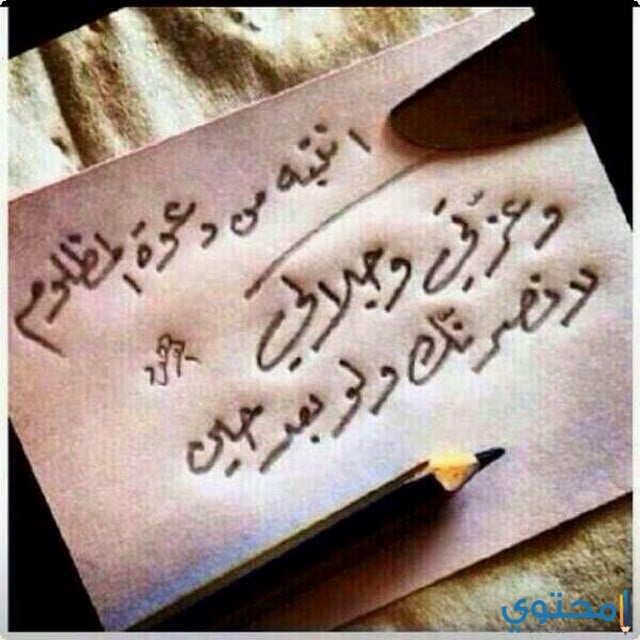 انتبه من دعوة المظلوم
وعزتي وجلالي
لانصرنك ولو بعد حين
محتوي